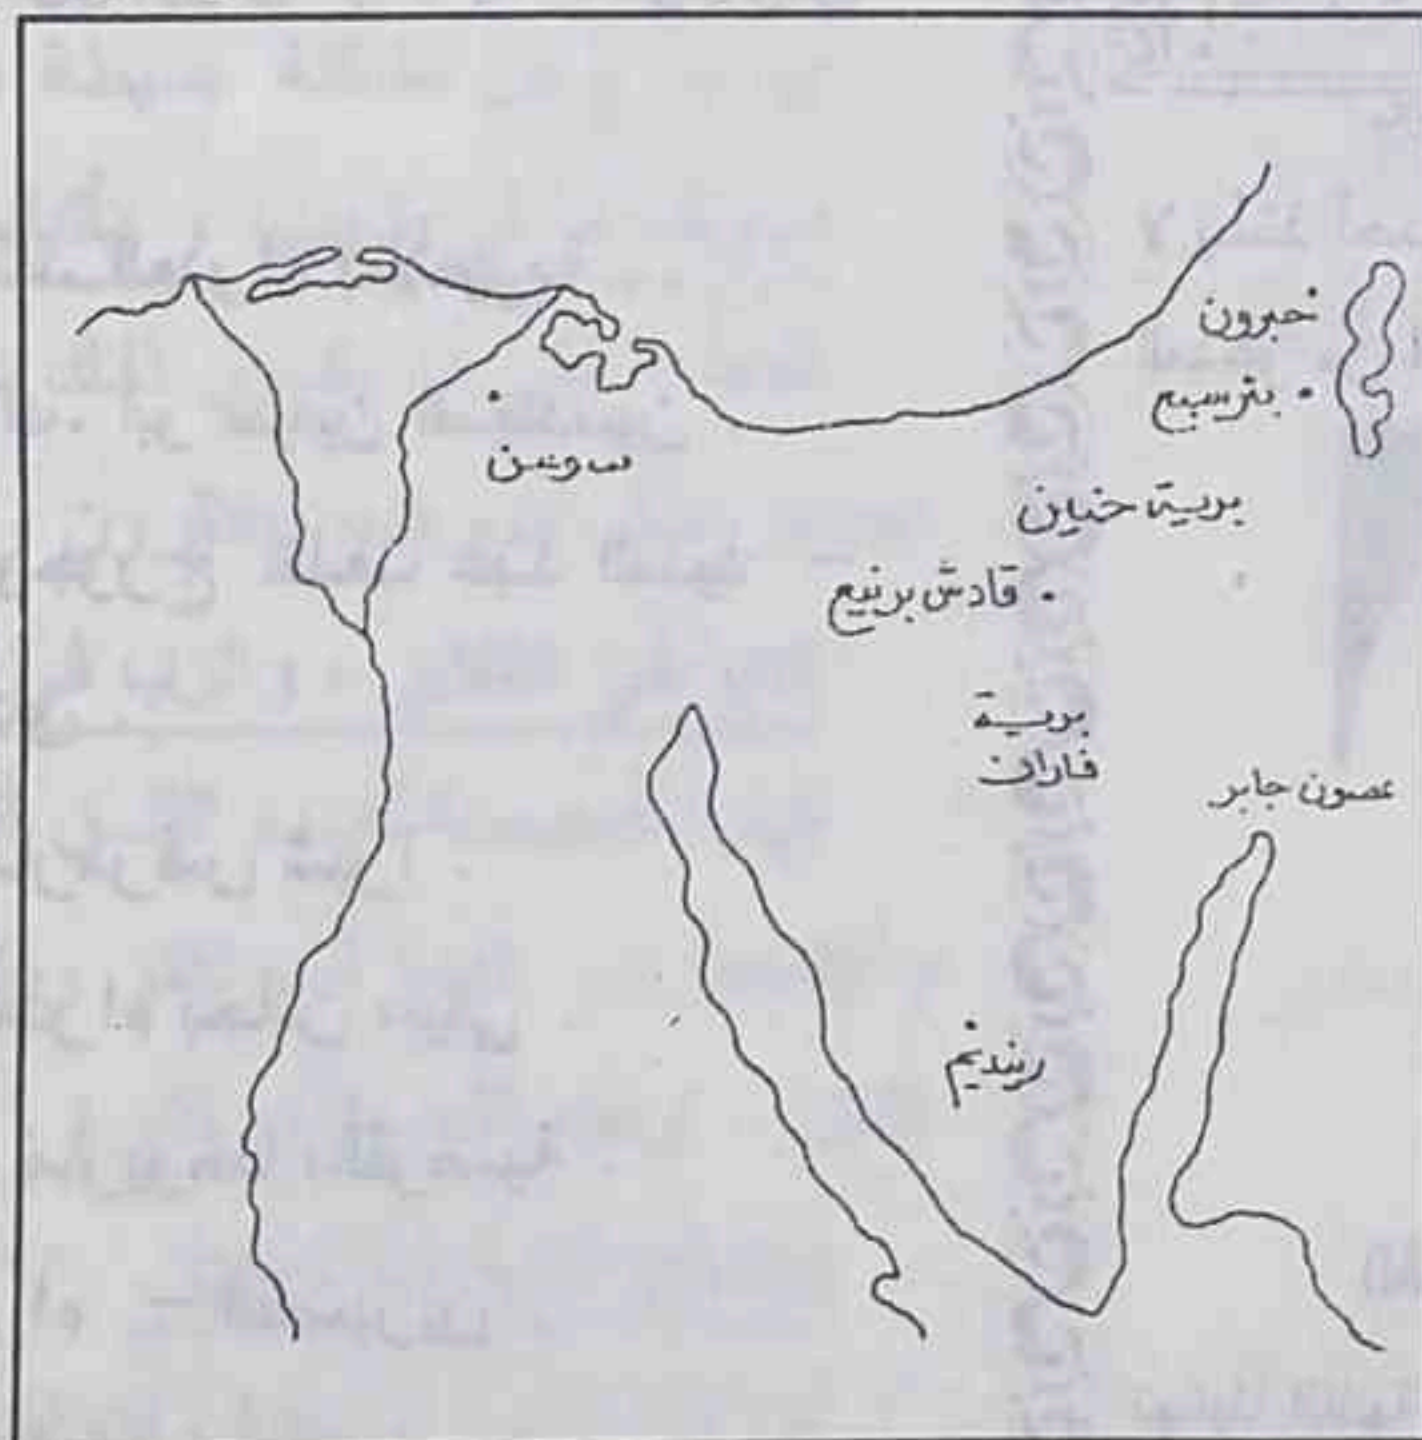 حبرون
بئر سبع
سوسن
برية خنين
قادش برنيع
برية
فاران
عصون جابر
رينديم